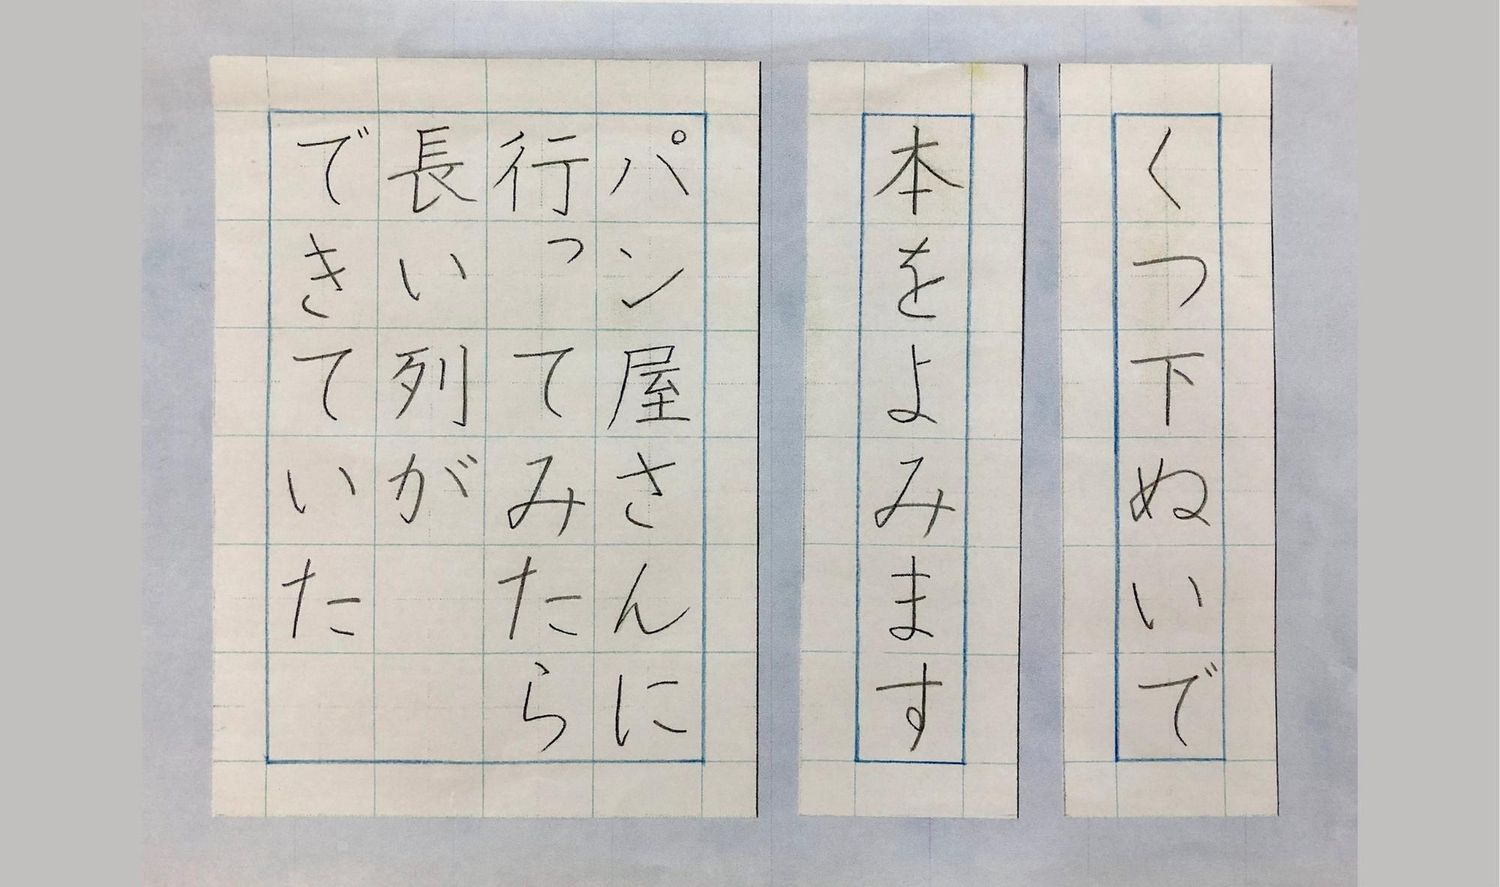 くつ下ぬいで
本をよみます
パン屋さんに
行ってみたら
長い列が
できていた